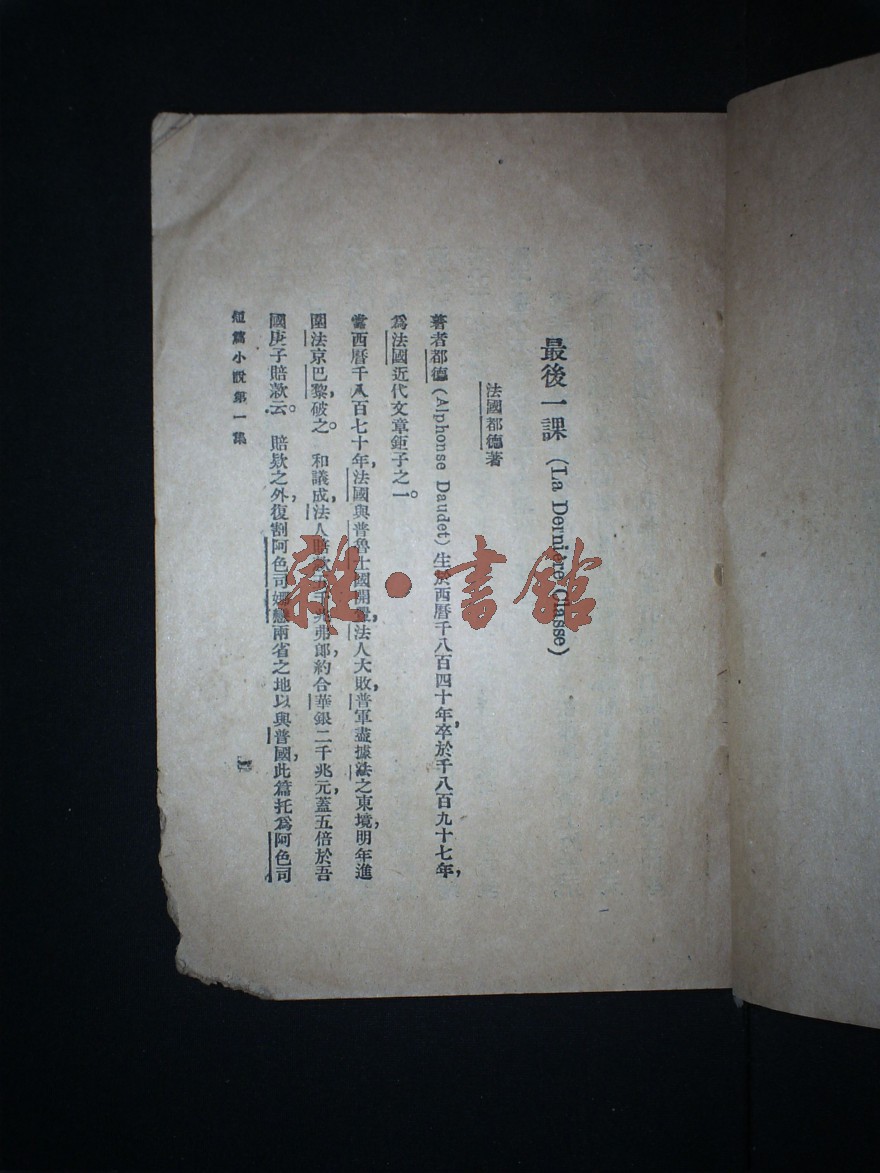 最後一課 (La Dernière Classe)
法國都德著
著者都德 (Alphonse Daudet) 生於西曆千八百四十年，卒於千八百九十七年，
爲法國近代文章鉅子之一。
當西曆千八百七十年，法國與普魯士國開釁，法人大敗，普軍盡據法之東境，明年進
圍法京巴黎，破之。 和議成，法人賠款五千兆弗郎，約合華銀二千兆元，蓋五倍於吾
國庚子賠款云。 賠款之外，復割阿色司娜戀兩省之地以與普國，此篇托爲阿色司
短篇小說第一集
雜·書館